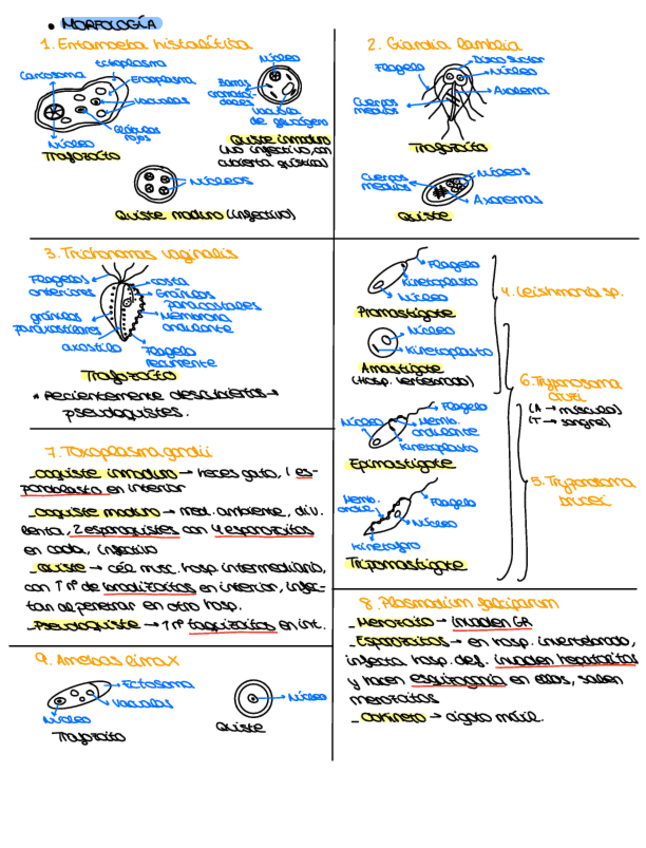 • MORFOLOGÍA
1. Entamoeba histolítica
Cariosoma
Ectoplasma
Endoplasma
Vacuolas
Glóbulos
rojos
Núcleo
Trofozoíto
Núcleo
Barras
cromatoi-
dales
Vacuola
de glucógeno
Quiste inmaduro
(No infectivo, con
cubierta quística)
Núcleos
Quiste maduro (infectivo)
2. Giardia lamblia
Flagelo
Disco suctor
Núcleo
Axonema
Cuerpos
medios
Trofozoíto
Cuerpos
medios
Núcleos
Axonemas
Quiste
3. Trichomonas vaginalis
Flagelos
anteriores
gránulos
paraxostilares
axostilo
costa
Gránulos
paracostales
Membrana
ondulante
Flagelo
recurrente
Trofozoíto
* Recientemente descubiertos →
pseudoquistes.
Flagelo
Kinetoplasto
Núcleo
Promastigote
Núcleo
Kinetoplasto
Amastigote
(Hosp. vertebrado)
4. Leishmania sp.
6. Trypanosoma
cruzi
(A → músculo)
(T → sangre)
Flagelo
Núcleo
Memb.
ondulante
Kinetoplasto
Epimastigote
5. Trypanosoma
brucei
Memb.
ondul.
Flagelo
Núcleo
Kinetopro
Tripomastigote
7. Toxoplasma gondii
_ooquiste inmaduro → heces gato, 1 es-
poroblasto en interior
_ooquiste maduro → med. ambiente, div.
lenta, 2 esporoquistes con 4 esporozoitos
en cada, infectivo
_Quiste → cél musc. hosp intermediario,
con ↑ nº de bradizoítos en interior, infec-
tan al penetrar en otro hosp.
_Pseudoquiste → ↑ nº taquizoítos en int.
8. Plasmodium falciparum
_Merozoito → invaden GR
_Esporozoitos → en hosp. invertebrado,
infecta hosp. def. invaden hepatocitos
y hacen esquizogonia en ellos, salen
merozoitos
_Ookineto → cigoto móvil.
9. Amebas limax
Ectosoma
Vacuolas
Núcleo
Trofozoíto
Núcleo
Quiste